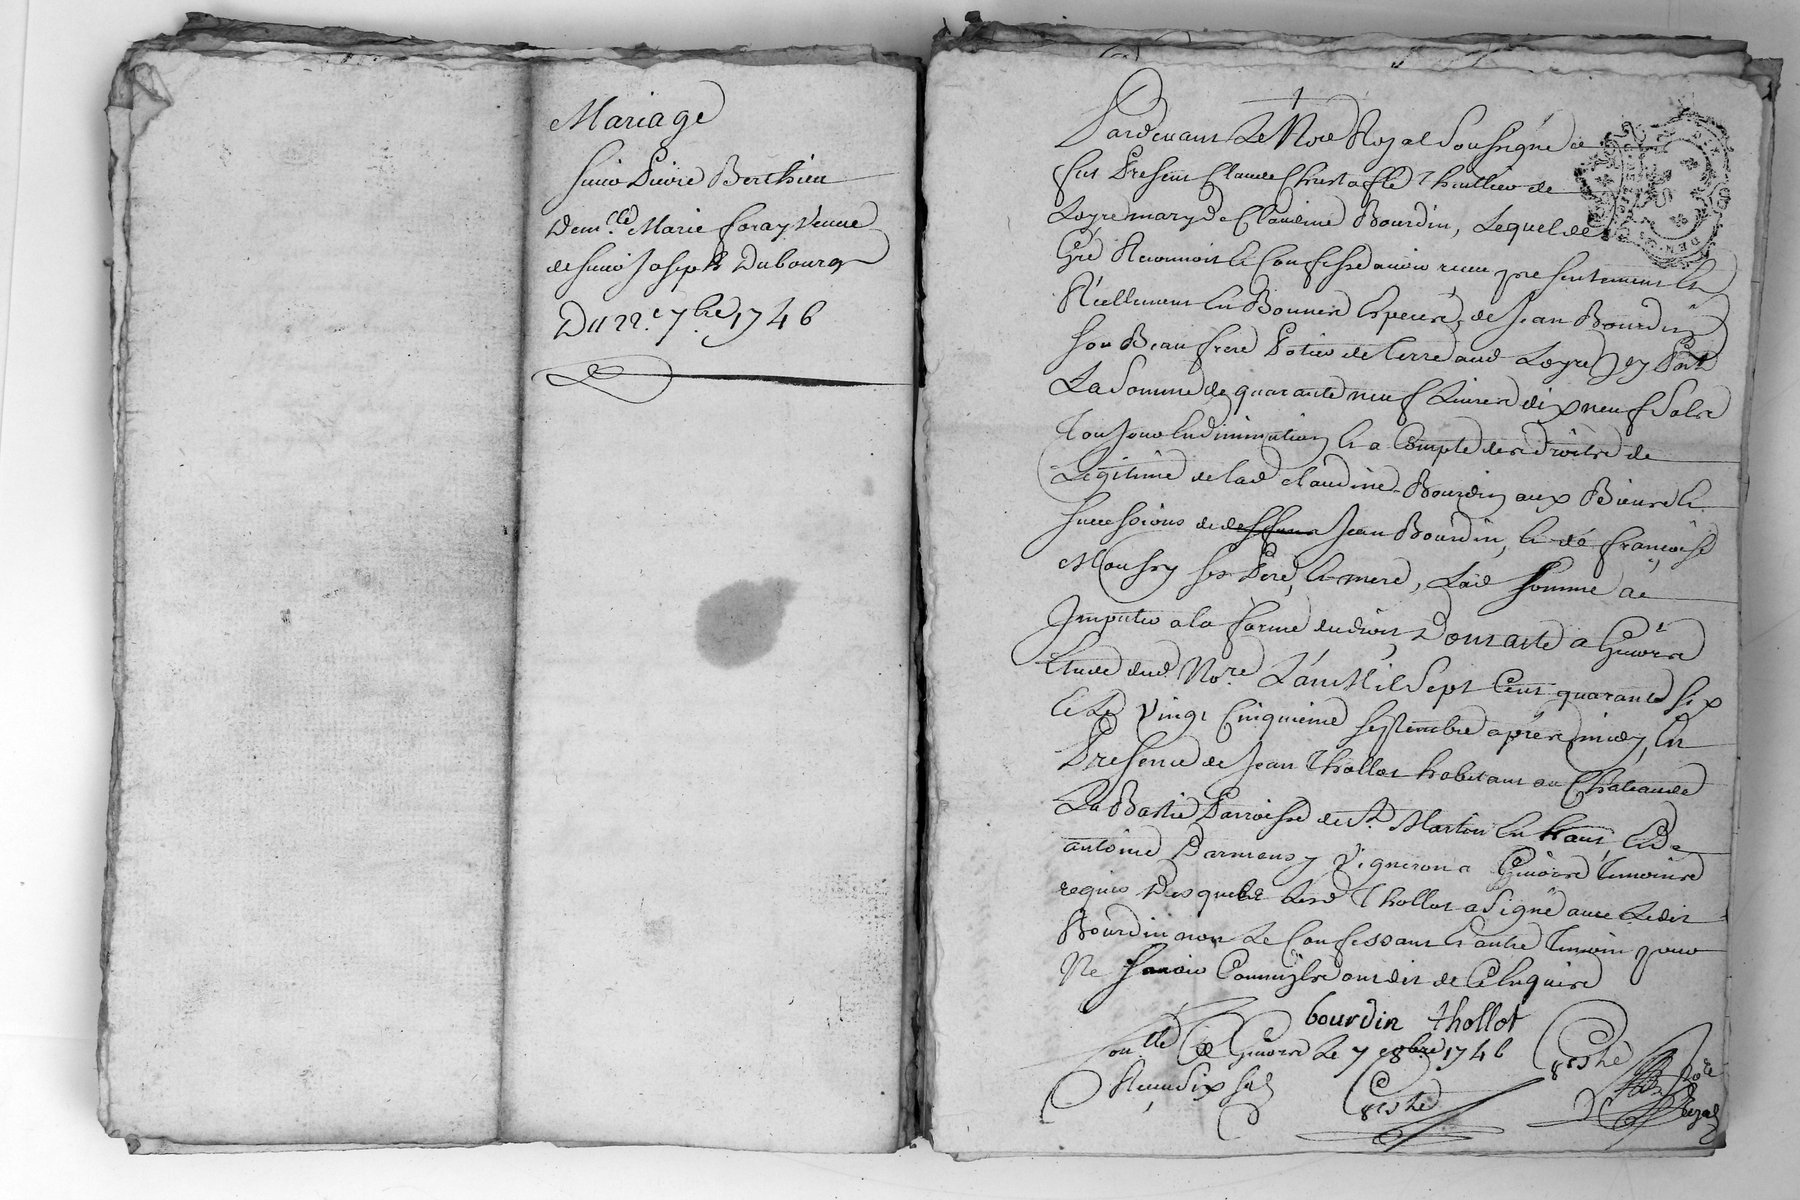 Mariage
sieur Pierre Berthieu
Dem.lle Marie foray Veuve
de sieur Joseph Dubourg
Du 22.e 7bre 1746
Pardevant Le Nore Royal Soussigné
fut Present Claude Christofle Thuillier de
Loyre mary de Claudine Bourdin, Lequel de
Gré Reconnoit et Confesse avoir receu presentement et
Réellement En Bonnes Especes, de Jean Bourdin
son Beau frere Potier de terre aud Loyre
La Somme de quarante neuf Livres dix neuf Sols
a Compte des droits de
Legitime de lad Claudine Bourdin aux Biens et
successions de Jean Bourdin, et de françoise
ses Pere, et mere, Lad somme
Imputer a la forme du droit, Dont acte a Givors
Etude dud Nore. L'an Mil Sept Cent quarante six
Et Le Vingt Cinquieme septembre apres midy, En
Presence de Jean Thollot habitant au Chateau de
La Bastie Parroisse de St. Martin En haut, et de
antoine Darmensy Vigneron a Givors temoins
requis Desquels Led Thollot a Signé avec Ledit
Bourdin non Le Confessant et autre temoin pour
Ne sçavoir Comm'ils ont dit de Ce Enquis
bourdin thollot
Con.lle a Givors Le 7 8bre 1746
Receu Six sols
Nore
Royal